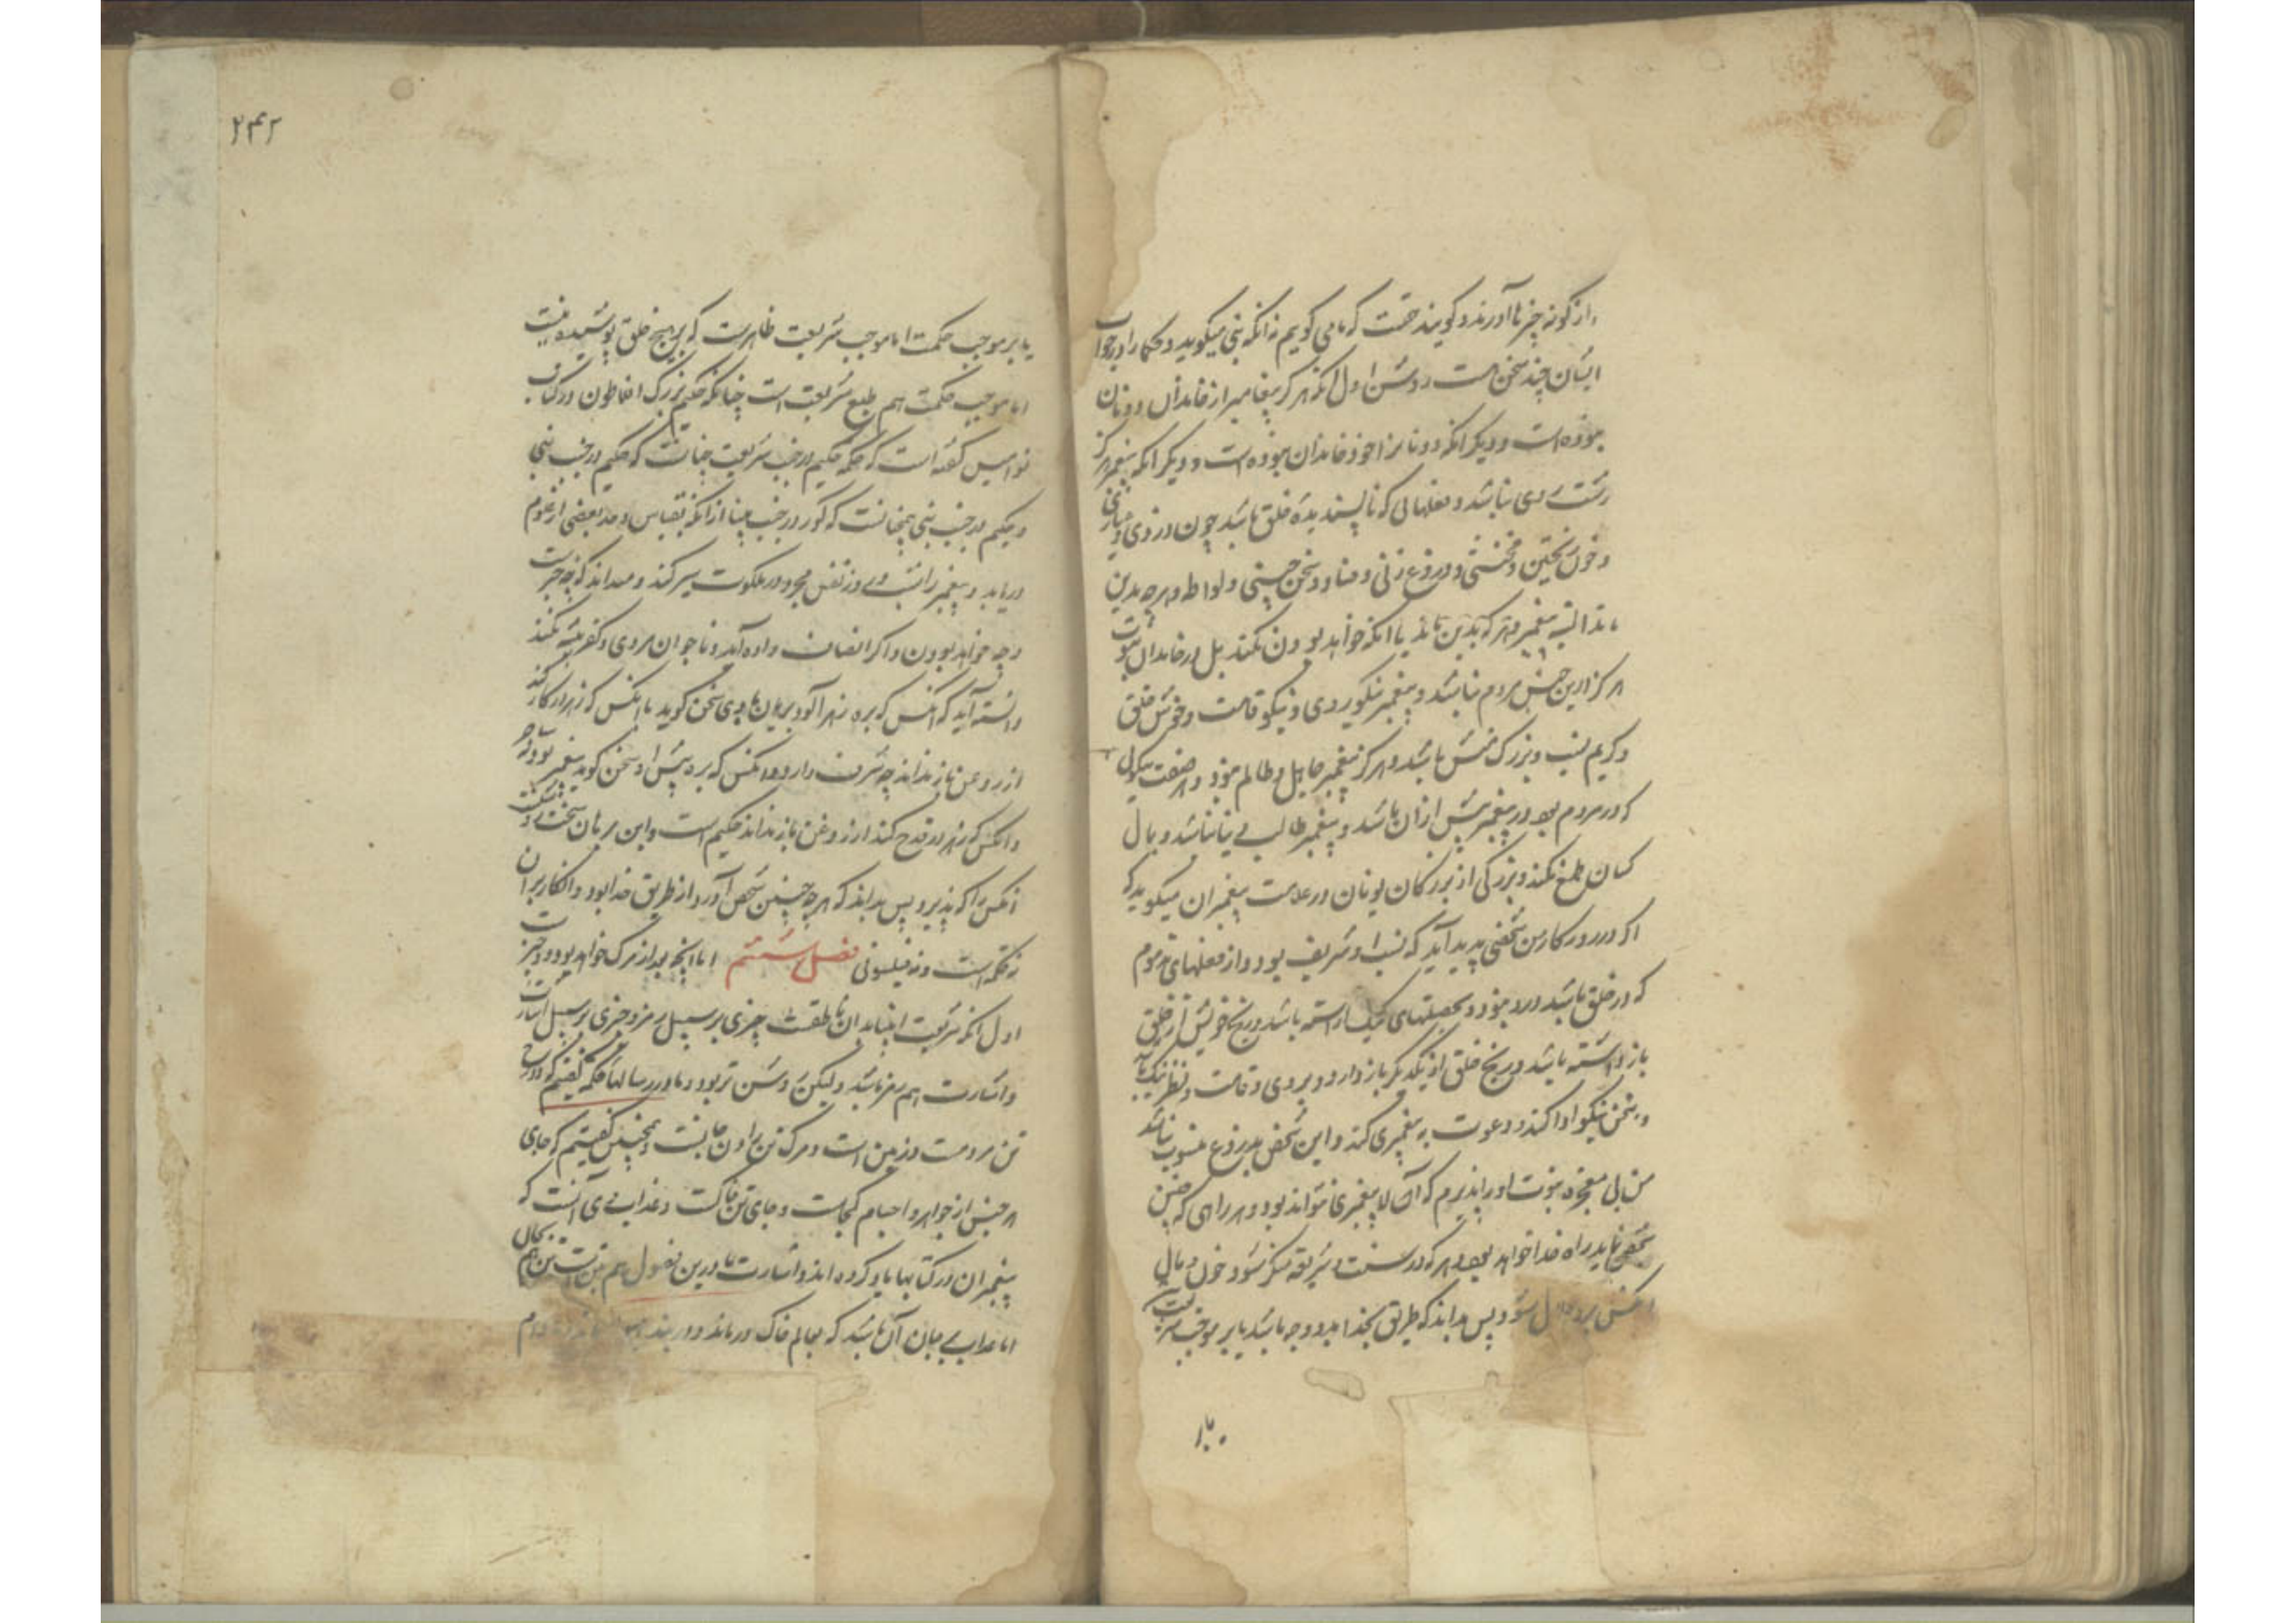 ازکونه چیزها آورند و کویند حقست که ما می کویم نه انکه نبی میکوید و حکما را در جواب
ایشان چند سخن است روشن اول انکه هرکز پیغامبر از خاندان دونان
نبوده است و دیکر انکه دونانرا خود خاندان نبوده است و دیکر انکه پیغمبر هرکز
زشت روی نباشد و فعلهائی که ناپسندیده خلق باشد چون دزدی و
و خون ریختن و مخنثی و دروغ زنی و فساد و سخن چینی و لواطه و هرچه بدین
ماند البته پیغمبر و هر که بدین ماند یا انکه خواهد بودن نکند بل در خاندان نبوت
هرکز ازین جنس مردم نباشد و پیغمبر نیکو روی و نیکو قامت و خوش خلق
و کریم نسب و بزرک منش باشد و هرکز پیغمبر جاهل و ظالم نبود و هر صفت نیکوئی
که در مردم بود در پیغمبر بیش ازان باشد و پیغمبر طالب دنیا نباشد و بمال
کسان طمع نکند و بزرکی از بزرکان یونان در علامت پیغمبران میکوید که
اکر در روزکار من شخصی پدید آید که نسب او شریف بود و از فعلهای مذموم
که در خلق باشد درو نبود و بخصلتهای نیک اراسته باشد و رنج خویش از خلق
باز داشته باشد و رنج خلق از یکدیکر باز دارد و بروی و قامت و نظر نیک باشد
و سخن نیکو ادا کند و دعوت به پیغمبری کند و این شخص بدروغ منسوب نباشد
من بی معجزه نبوت او را پذیرم که آن الا پیغمبری نتواند بود و هر راهی که چنین
شخص نماید راه خدا خواهد بود و هر که در سنت و شریعة منکر شود خون و مال
انکس برو حلال شود پس بداند که طریق بخدا بدو وجه باشد یا بر موجب شریعت
یا بر
۲۴۲
یا بر موجب حکمت اما موجب شریعت ظاهرست که بر هیچ خلق پوشیده نیست
اما موجب حکمت هم طبع شریعت است چنانکه حکیم بزرک افلاطون در کتاب
نوامیس کفته است که حکمة حکیم در جنب شریعت چنانست که حکیم در جنب نبی
و حکیم در جنب نبی همچنانست که کور در جنب بینا ازانکه بقیاس و حد بعضی از علوم
دریابد و پیغمبر راشب و روز نفس مجرد در ملکوت سیر کند و میداند که چه چیزست
و چه خواهد بودن و اکر انصاف داده آید و ناجوان مردی و کفر بیشه نکنند
دانسته آید که انکس که بره زهر آلود بریان با وی سخن کوید با انکس که زهر در کار کند
از روغن باز نداند چه شرف دارد و انکس که بره پیش او سخن کوید پیغمبر بود
و انکس که زهر در قدح کند از روغن باز نداند حکیم است و این برهان سختست
انکس را که پذیرد پس بداند که هرچه چنین شخص آورد از طریق خدا بود و انکار بر ان
نه حکمة است و نه فیلسوفی فصل ششم اما انچه بعد از مرک خواهد بود دو چیزست
اول انکه شریعت انبیا بدان ناطقست چیزی بر سبیل رمز و چیزی بر سبیل اشارت
و اشارت هم رمز باشد ولیکن روشن تر بود و ما در رسالهاء حکمة کفتیم که روح
تن مردمست و زمین است و مرک تن را و ن جانست و همچنین کفتیم که جای
هر جنس از جواهر و اجسام کجاست و جای تن خاکست و عذاب وی آنست که
پیغمبران در کتابها یاد کرده اند و اشارت ما درین فصول هم
اما عذاب جان آن باشد که بعالم خاک در ماند و در بند